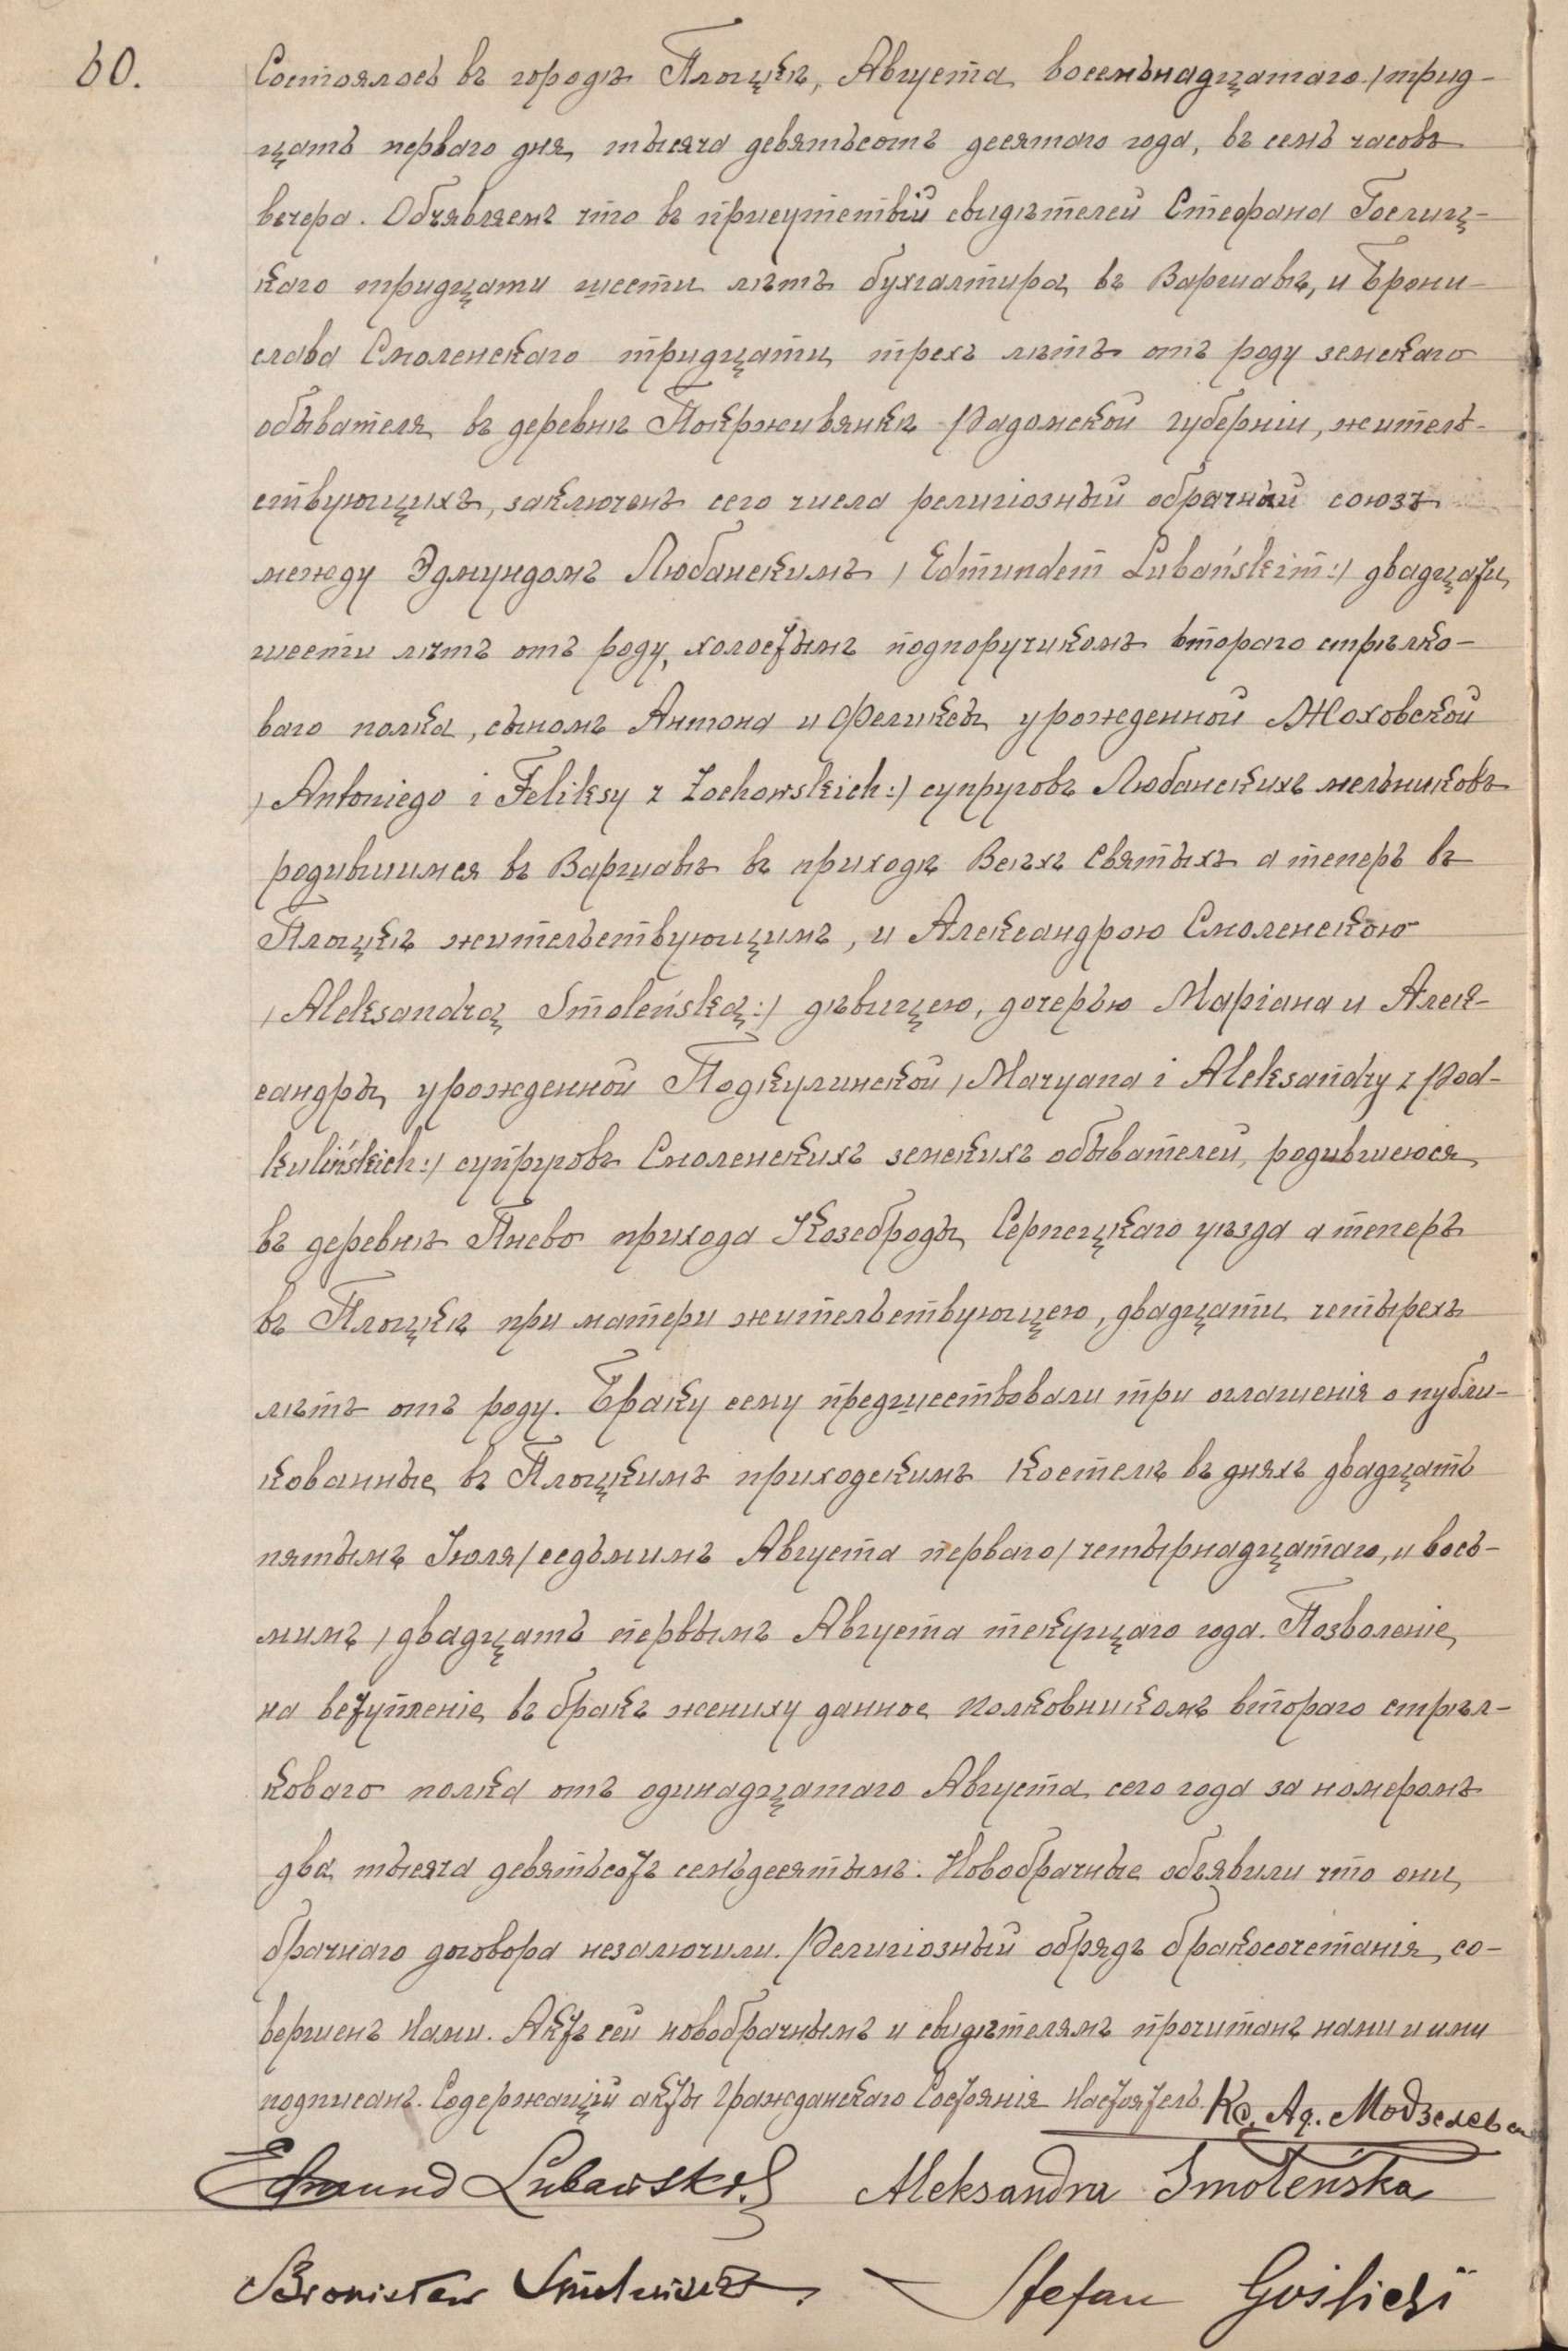 60.
Состоялось въ городѣ Плоцкѣ, Августа восемьнадцатаго /трид-
цать перваго дня, тысяча девятьсотъ десятаго года, въ семь часовъ
вечера. Объявляемъ что въ присутствіи свидѣтелей Стефана Гослиц-
каго тридцати шести лѣтъ бухгалтира, въ Варшавѣ, и Брони-
слава Смоленскаго тридцати трехъ лѣтъ отъ роду земскаго
обывателя въ деревнѣ Покрживянкѣ Радомской губерніи, житель-
ствующихъ, заключенъ сего числа религіозный обрачный союзъ
между Эдмундомъ Любанскимъ / Edmundem Lubańskim :/ двадцати
шести лѣтъ отъ роду, холостымъ подпоручикомъ втораго стрѣлко-
ваго полка, сыномъ Антона и Феликсы урожденной Жоховской
/ Antoniego i Feliksy z Żochowskich :/ супруговъ Любанскихъ мельниковъ
родившимся въ Варшавѣ въ приходѣ Всѣхъ Святыхъ а теперь въ
Плоцкѣ жительствующимъ, и Александрою Смоленскою
/ Aleksandrą Smoleńską :/ дѣвицею, дочерью Маріана и Алек-
сандры, урожденной Подкулинской / Maryana i Aleksandry z Pod-
kulińskich :/ супруговъ Смоленскихъ земскихъ обывателей, родившеюся
въ деревнѣ Пнево прихода Козеброды Серпецкаго уѣзда а теперь
въ Плоцкѣ при матери жительствующею, двадцати четырехъ
лѣтъ отъ роду. Браку сему предшествовали три оглашенія о публи-
кованные въ Плоцкимъ приходскимъ костелѣ въ дняхъ двадцать
пятымъ Іюля / седьмимъ Августа перваго / четырнадцатаго, и вось-
мимъ / двадцать первымъ Августа текущаго года. Позволеніе
на вступленіе въ бракъ жениху данное Полковникомъ втораго стрѣл-
коваго полка отъ одинадцатаго Августа сего года за номеромъ
два тысяча девятьсотъ семьдесятымъ. Новобрачные объявили что они
брачнаго договора незалючили. Религіозный обрядъ бракосочетанія со-
вершенъ Нами. Актъ сей новобрачнымъ и свидѣтелямъ прочитанъ нами и ими
подписанъ. Содержащій акты Гражданскаго Состоянія Настоятель. Кс. Ад. Модзелевс
Edmund Lubański Aleksandra Smoleńska
Bronisław Smoleński Stefan Goślicki